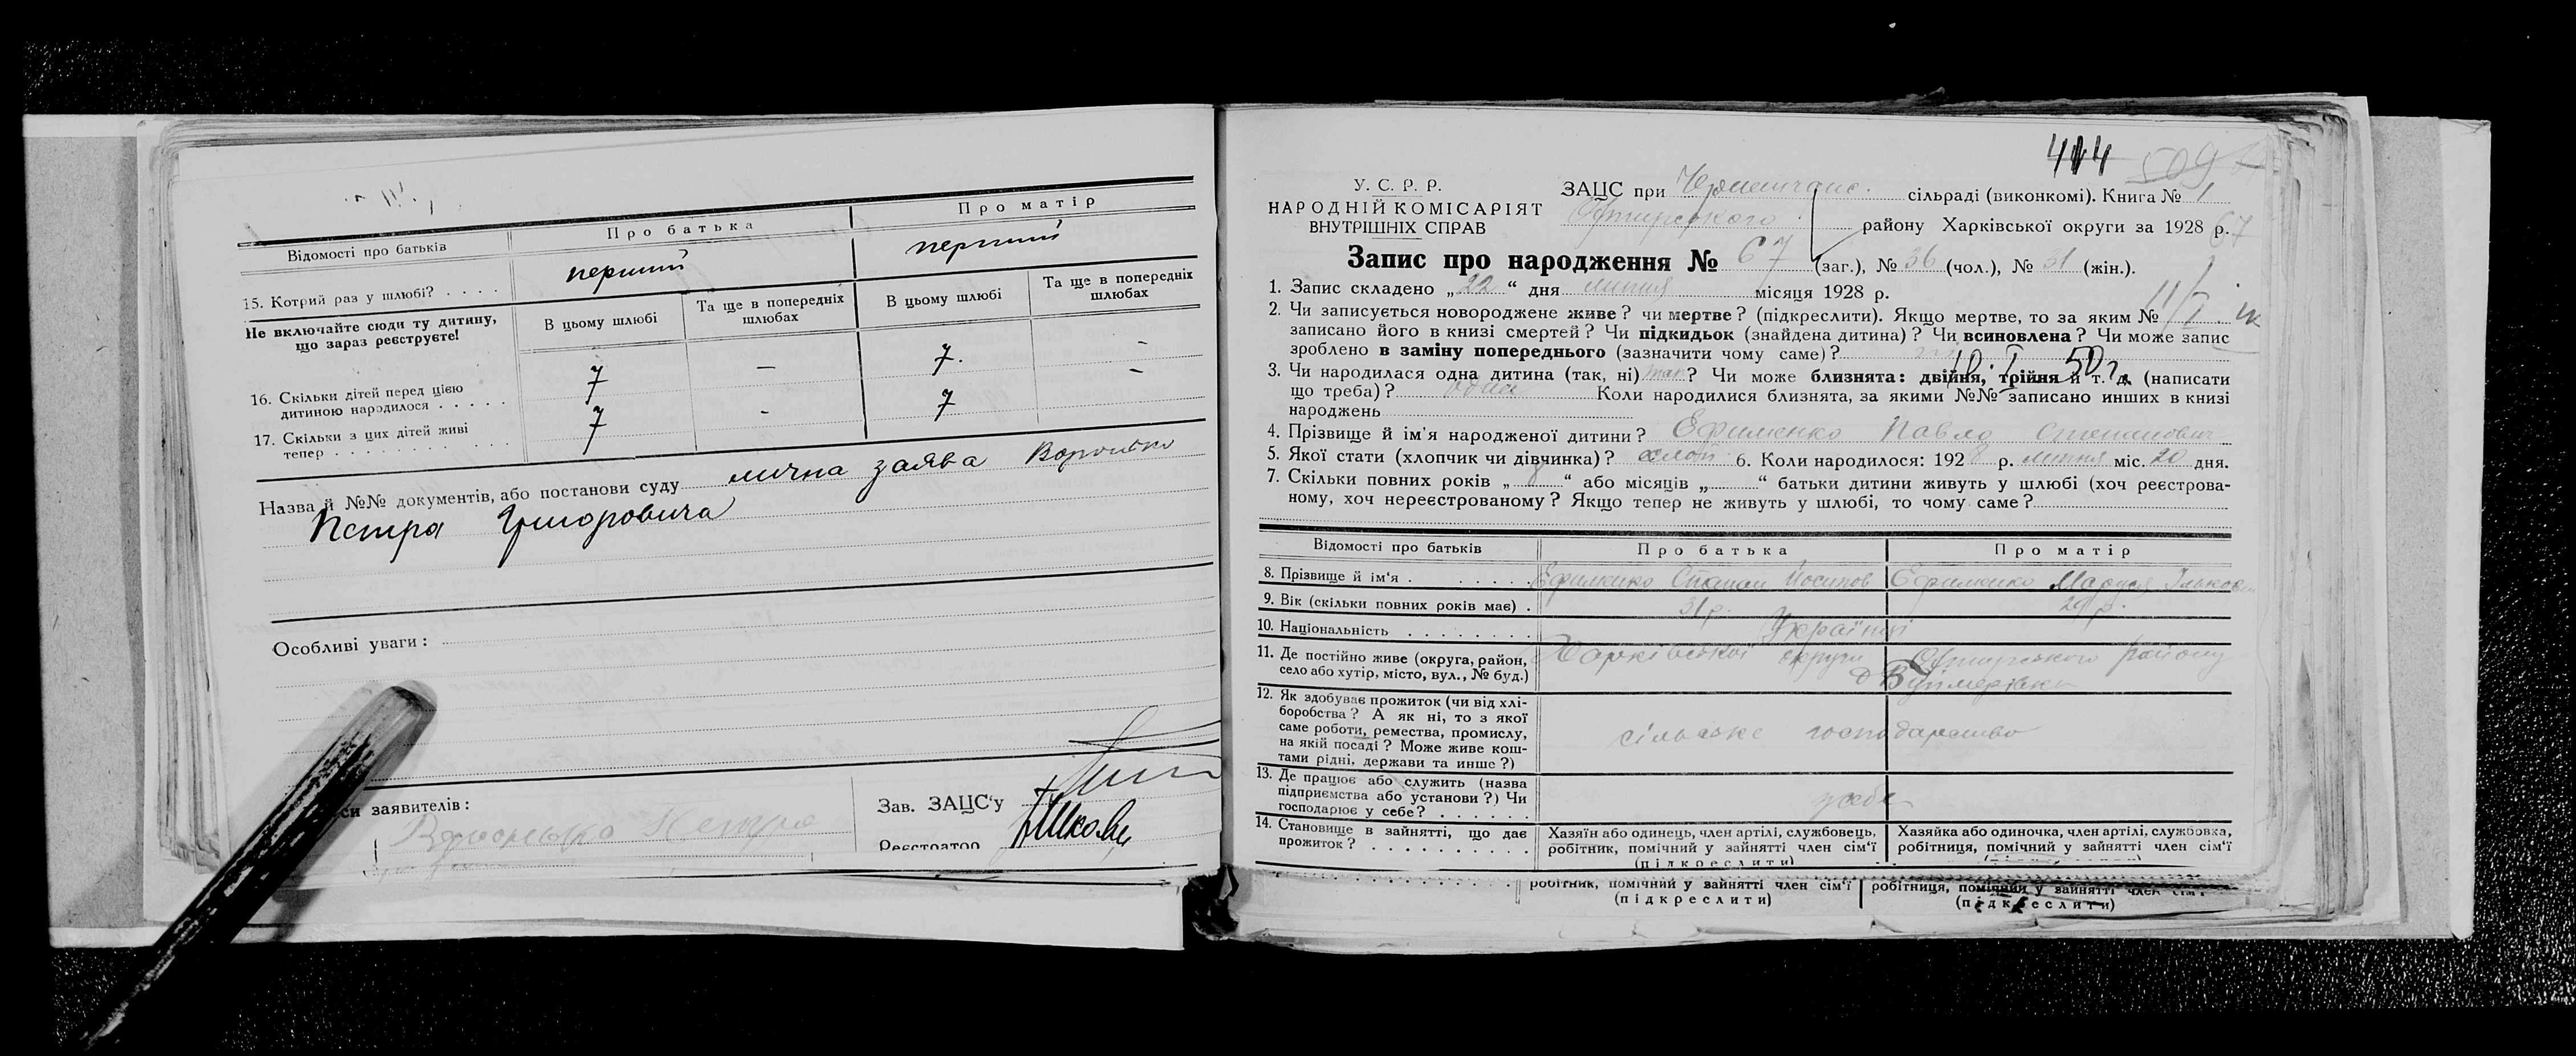 Відомості про батьків
Про батька
Про матір
15. Котрий раз у шлюбі? . . . .
перший
перший
Не включайте сюди ту дитину,
що зараз реєструєте!
В цьому шлюбі
Та ще в попередніх
шлюбах
В цьому шлюбі
Та ще в попередніх
шлюбах
16. Скільки дітей перед цією
дитиною народилося . . . . .
7
—
7.
-
17. Скільки з цих дітей живі
тепер . . . . . . . .
7
-
7
-
Назва й №№ документів, або постанови суду лична заява
Петра Григоровича
Особливі уваги:
си заявителів:
Петро
Зав. ЗАЦС'у
Реєстратор
414
У. С. Р. Р.
НАРОДНІЙ КОМІСАРІЯТ
ВНУТРІШНІХ СПРАВ
ЗАЦС при сільраді (виконкомі). Книга № 1
району Харківської округи за 1928 р.
67
Запис про народження № 67 (заг.), № 36 (чол.), № 31 (жін.).
1. Запис складено „22“ дня липня місяця 1928 р.
2. Чи записується новороджене живе? чи мертве? (підкреслити). Якщо мертве, то за яким №
записано його в книзі смертей? Чи підкидьок (знайдена дитина)? Чи всиновлена? Чи може запис
зроблено в заміну попереднього (зазначити чому саме)?
3. Чи народилася одна дитина (так, ні) так? Чи може близнята: двійня, трійня й т. д. (написати
що треба)? одна Коли народилися близнята, за якими №№ записано инших в книзі
народжень
4. Прізвище й ім'я народженої дитини? Ефименко Павло Степанович
5. Якої стати (хлопчик чи дівчинка)? хлоп 6. Коли народилося: 1928 р. липня міс. 20 дня.
7. Скільки повних років „8“ або місяців „ “ батьки дитини живуть у шлюбі (хоч реєстрова-
ному, хоч нереєстрованому? Якщо тепер не живуть у шлюбі, то чому саме?
Відомості про батьків
Про батька
Про матір
8. Прізвище й ім'я . . . . . .
Ефименко Степан Йосипов
Ефименко Маруся
9. Вік (скільки повних років має) .
31 р.
29 р.
10. Національність . . . . . . . .
Українці
11. Де постійно живе (округа, район,
село або хутір, місто, вул., № буд.)
Харківської округи району
12. Як здобуває прожиток (чи від хлі-
боробства? А як ні, то з якої
саме роботи, ремества, промислу,
на якій посаді? Може живе кош-
тами рідні, держави та инше?)
сільське господарство
13. Де працює або служить (назва
підприємства або установи?) Чи
господарює у себе? . . . . . .
у себе
14. Становище в зайнятті, що дає
прожиток? . . . . . . . . . .
Хазяїн або одинець, член артілі, службовець,
робітник, помічний у зайнятті член сім'ї
(підкреслити)
Хазяйка або одиночка, член артілі, службовка,
робітниця, помічний у зайнятті член сім'ї
робітник, помічний у зайнятті член сім'ї
(підкреслити)
робітниця, помічний у зайнятті член сім'ї
(підкреслити)